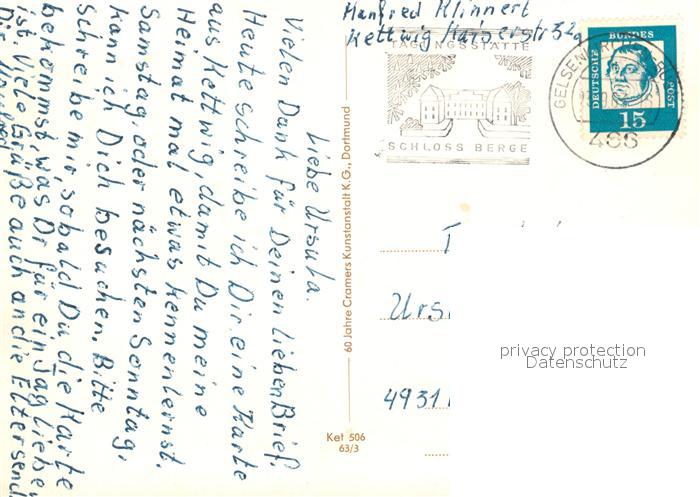 Manfred Klinnert
Kettwig Kaiserstr. 32a
TAGUNGSSTÄTTE
SCHLOSS BERGE
GELSENKIRCHEN
466
DEUTSCHE
BUNDES
POST
15
Liebe Ursula.
Vielen Dank für Deinen lieben Brief.
Heute schreibe ich Dir eine Karte
aus Kettwig, damit Du meine
Heimat mal etwas kennenlernst.
Samstag, oder nächsten Sonntag,
kann ich Dich besuchen. Bitte
schreibe mir, sobald Du die Karte
bekommst, was Dir für ein Tag lieber
ist. Viele Grüße auch an die Eltern
Dir Manfred
60 Jahre Cramers Kunstanstalt K.G., Dortmund
Urs
4931
Ket 506
63/3
privacy protection
Datenschutz